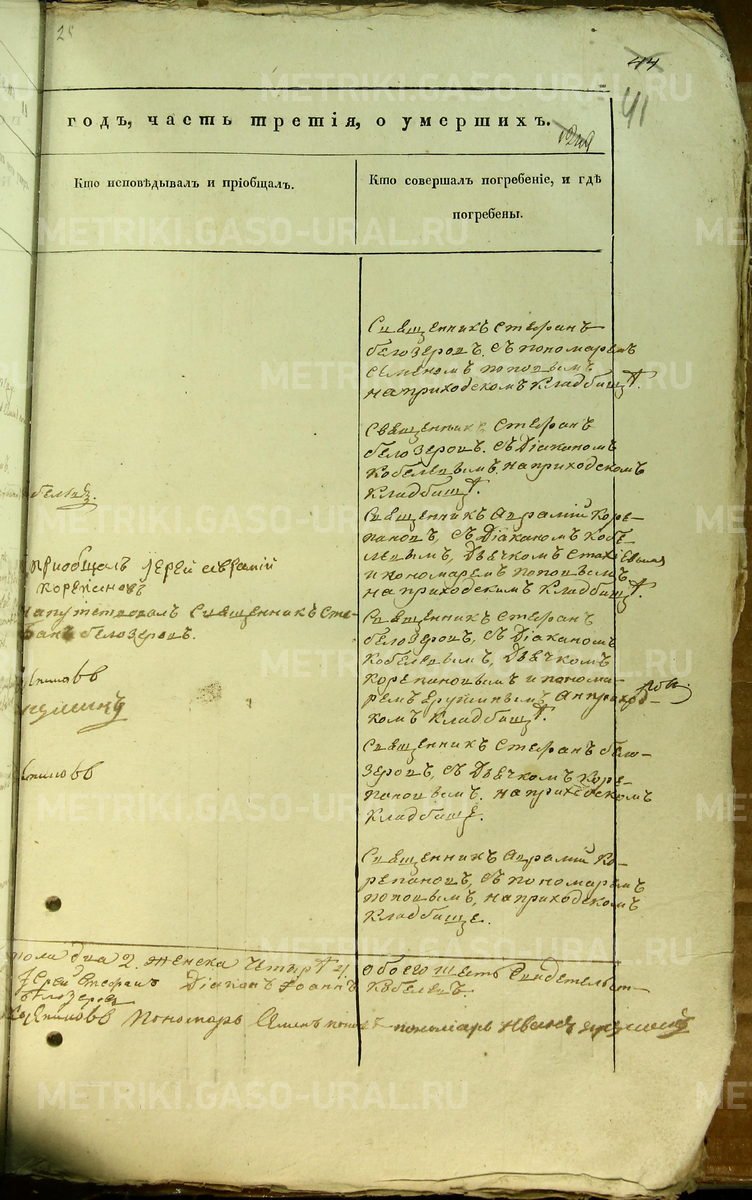 28
44
41
METRIKI.GASO-URAL.RU
годъ, часть третія, о умершихъ.
Кто исповѣдывалъ и пріобщалъ.
Кто совершалъ погребеніе, и гдѣ
погребены.
Священникъ Стефанъ
белозеровъ. съ пономаремъ
Симеономъ поповымъ
на приходскомъ кладбищѣ.
Священникъ Стефанъ
белозеровъ. съ Діакономъ
Кобелевымъ, на приходскомъ
кладбищѣ.
Священникъ Аврамій Коре-
пановъ, съ Діакономъ Кобе-
левымъ, Дьячкомъ
и пономаремъ поповымъ,
на приходскимъ кладбищѣ.
пріобщалъ іерей Аврамій
Корепановъ
напутствовалъ Священникъ Сте-
фанъ белозеровъ.
Священникъ Стефанъ
белозеровъ, съ Діакономъ
Кобелевымъ, Дьячкомъ
Корепановымъ и понома-
ремъ
комъ кладбищѣ.
Священникъ Стефанъ бело-
зеровъ, съ Дьячкомъ Коре-
пановымъ. на приходскомъ
кладбище.
Священникъ Аврамій Ко-
репановъ, съ пономаремъ
поповымъ, на приходскомъ
кладбище.
пола два 2. женска четыре 4. обоего шесть
Іерей Стефанъ Діаконъ Іоаннъ Кобелевъ.
белозеровъ
Пономарь Симеонъ поповъ пономарь Иванъ